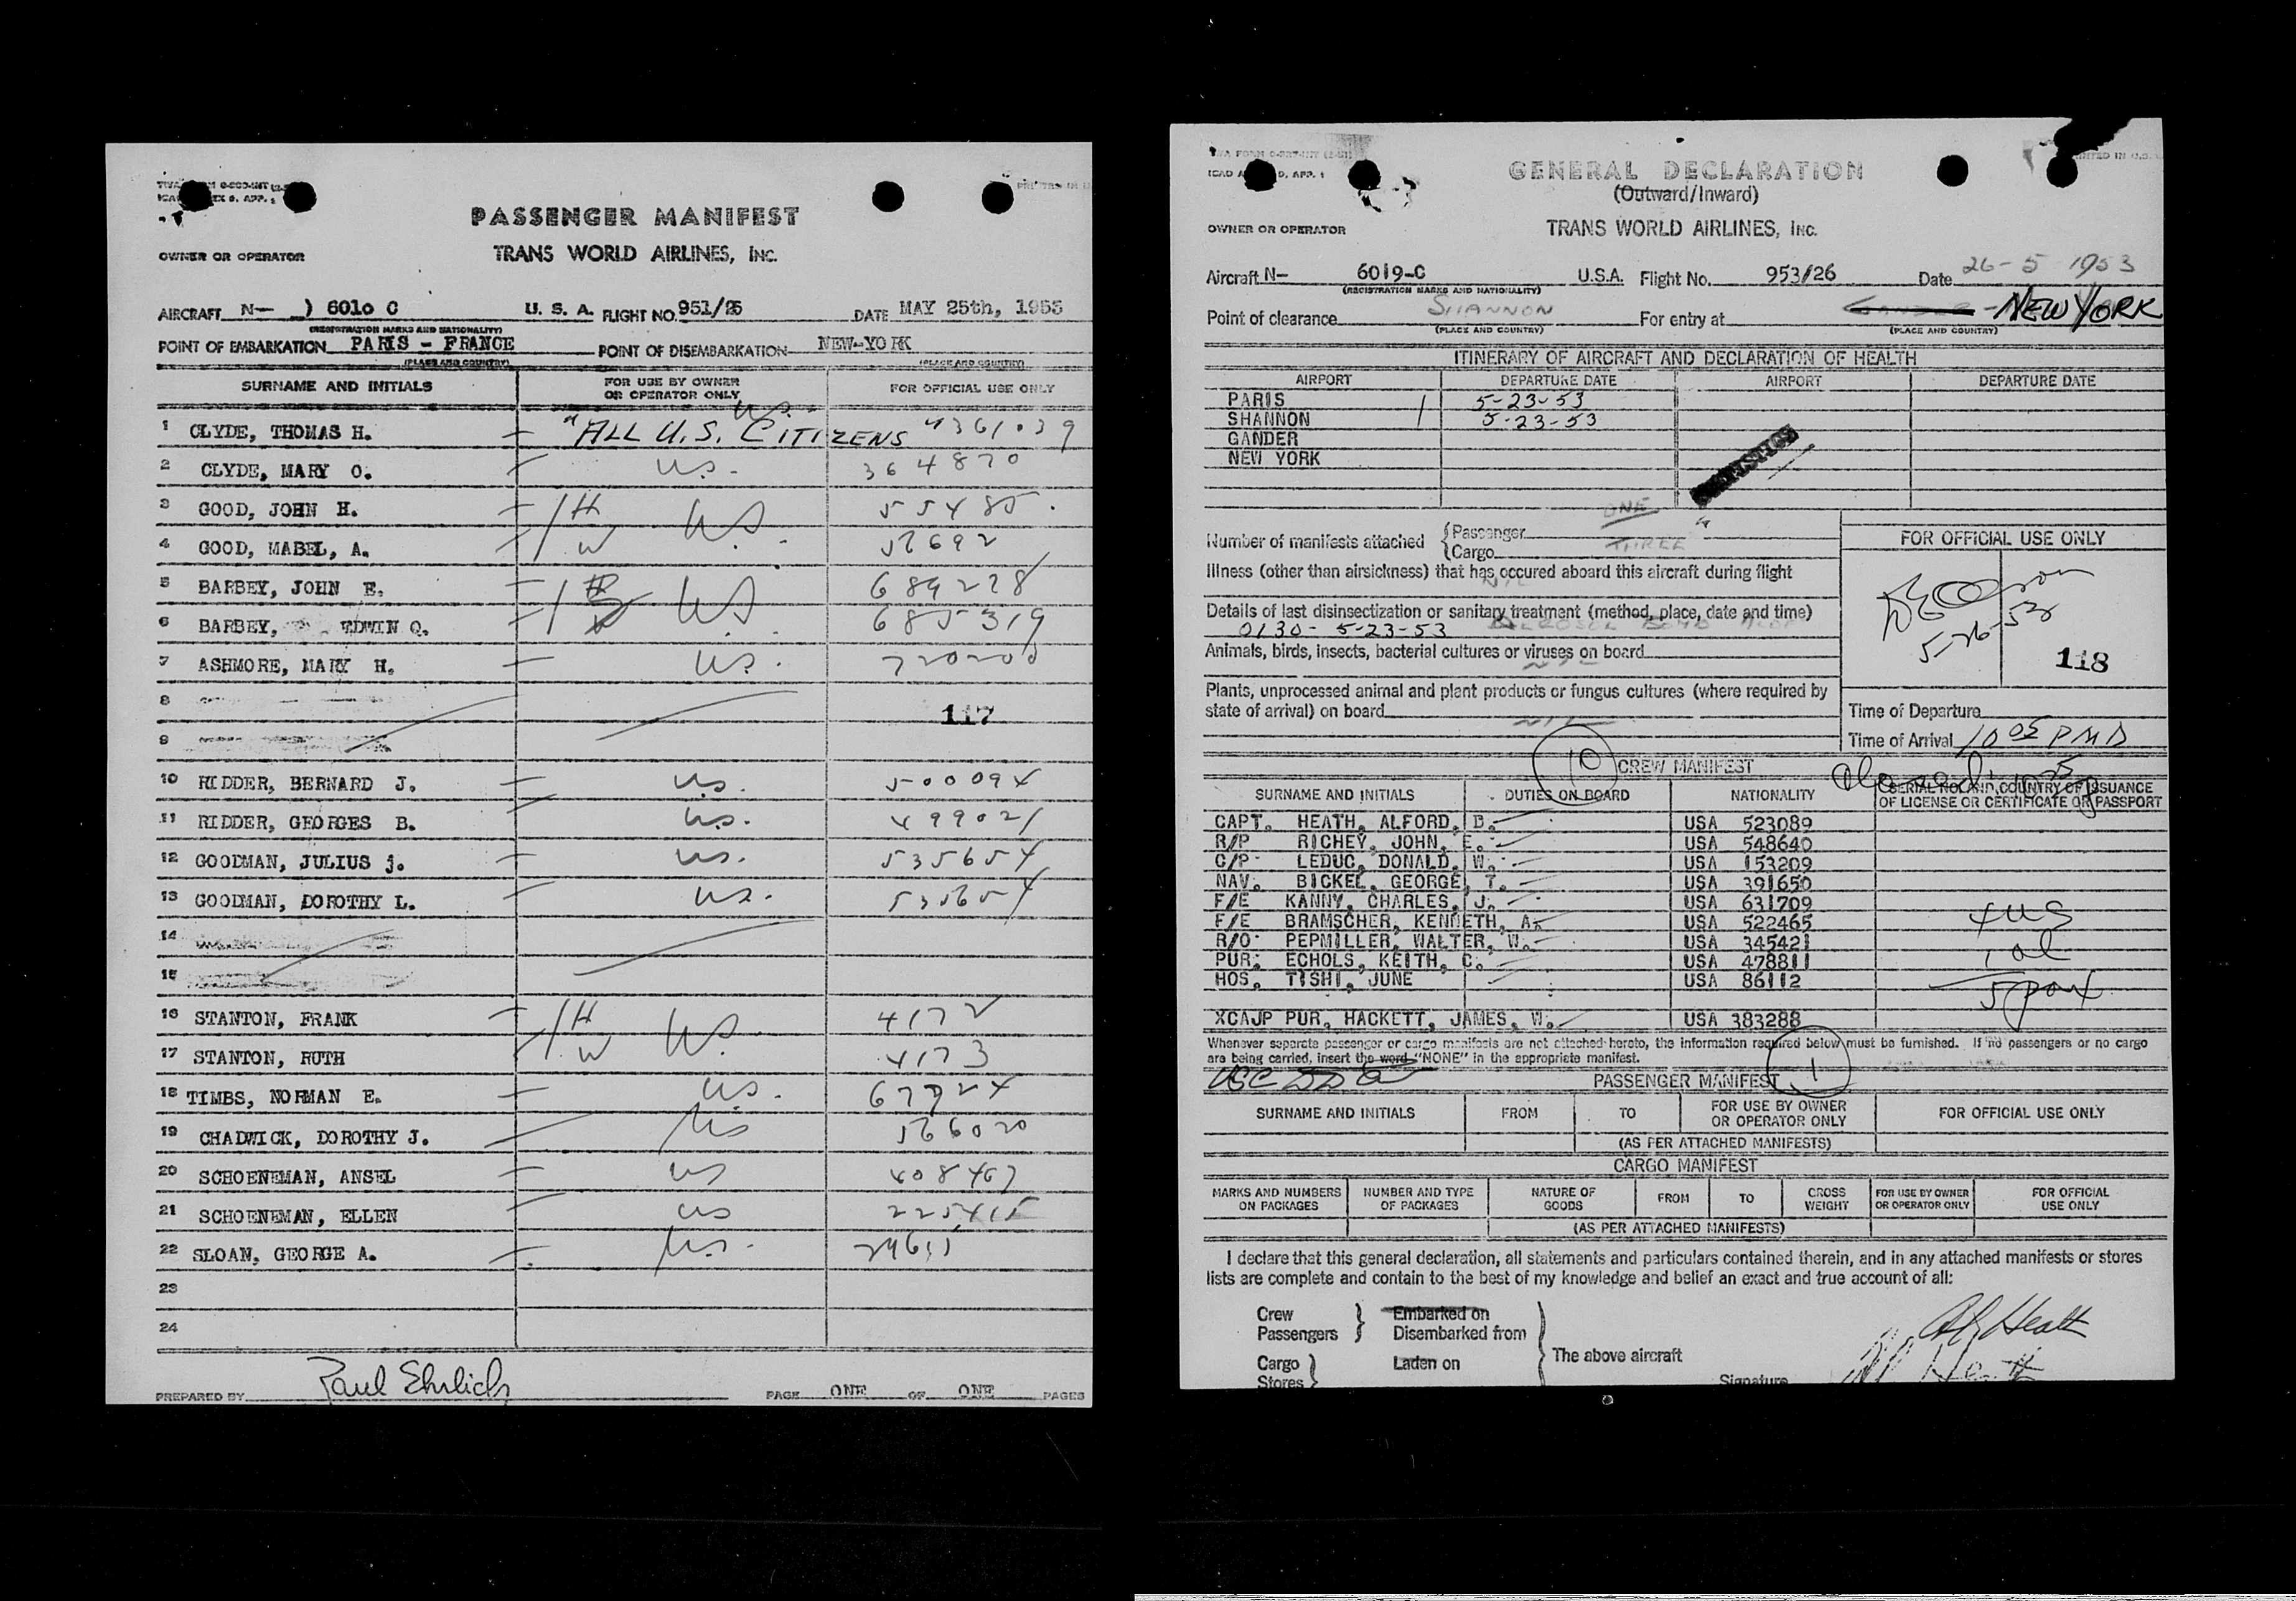 PASSENGER MANIFEST
TRANS WORLD AIRLINES, INC.
OWNER OR OPERATOR
AIRCRAFT N— ) 6010 C U. S. A. FLIGHT NO. 951/25 DATE MAY 25th, 1953
(REGISTRATION MARKS AND NATIONALITY)
POINT OF EMBARKATION PARIS - FRANCE POINT OF DISEMBARKATION NEW-YORK
(PLACE AND COUNTRY) (PLACE AND COUNTRY)
SURNAME AND INITIALS FOR USE BY OWNER OR OPERATOR ONLY FOR OFFICIAL USE ONLY
1 CLYDE, THOMAS H. — "ALL U.S. CITIZENS" U.S. 361039
2 CLYDE, MARY O. — U.S. 364870
3 GOOD, JOHN H. — 1 H U.S. 55485
4 GOOD, MABEL, A. — 1 W
5 BARBEY, JOHN E. — 1 U.S. 689228
6 BARBEY, EDWIN Q. — 1 685319
7 ASHMORE, MARY H. — U.S. 720200
8
117
9
10 RIDDER, BERNARD J. — U.S. 500094
11 RIDDER, GEORGES B. — U.S. 499021
12 GOODMAN, JULIUS j. — U.S. 535654
13 GOODMAN, DOROTHY L. — U.S. 535654
14
15
16 STANTON, FRANK — 1 H U.S. 4172
17 STANTON, RUTH — 1 W 4173
18 TIMBS, NORMAN E. — U.S. 67924
19 CHADWICK, DOROTHY J. — US 566020
20 SCHOENEMAN, ANSEL — US 408467
21 SCHOENEMAN, ELLEN — US 225415
22 SLOAN, GEORGE A. — U.S.
23
24
PREPARED BY Paul Ehrlich PAGE ONE OF ONE PAGES
GENERAL DECLARATION
(Outward/Inward)
OWNER OR OPERATOR TRANS WORLD AIRLINES, INC.
Aircraft N— 6019-C U.S.A. Flight No. 953/26 Date 26-5 1953
(REGISTRATION MARKS AND NATIONALITY)
Point of clearance SHANNON For entry at GANDER - NEW YORK
(PLACE AND COUNTRY) (PLACE AND COUNTRY)
ITINERARY OF AIRCRAFT AND DECLARATION OF HEALTH
AIRPORT DEPARTURE DATE AIRPORT DEPARTURE DATE
PARIS 5-23-53
SHANNON 5-23-53
GANDER
NEW YORK
Number of manifests attached { Passenger ONE
{ Cargo THREE
FOR OFFICIAL USE ONLY
Illness (other than airsickness) that has occured aboard this aircraft during flight
NIL
Details of last disinsectization or sanitary treatment (method, place, date and time)
0130- 5-23-53 AEROSOL BOMB
5-26-53
118
Animals, birds, insects, bacterial cultures or viruses on board
NIL
Plants, unprocessed animal and plant products or fungus cultures (where required by
state of arrival) on board NIL
Time of Departure
Time of Arrival 10 05 PM D
10
CREW MANIFEST
SURNAME AND INITIALS DUTIES ON BOARD NATIONALITY SERIAL NO. AND COUNTRY OF ISSUANCE OF LICENSE OR CERTIFICATE OR PASSPORT
CAPT. HEATH, ALFORD, B. USA 523089
R/P RICHEY, JOHN, E. USA 548640
C/P LEDUC, DONALD, W. USA 153209
NAV. BICKEL, GEORGE, T. USA 391650
F/E KANNY, CHARLES, J. USA 631709
F/E BRAMSCHER, KENNETH, A. USA 522465 4 US
R/O PEPMILLER, WALTER, W. USA 345421
PUR. ECHOLS, KEITH, C. USA 478811 1 al
HOS. TISHI, JUNE USA 86112
5 pax
XCAJP PUR. HACKETT, JAMES, W. USA 383288
Whenever separate passenger or cargo manifests are not attached hereto, the information required below must be furnished. If no passengers or no cargo
are being carried, insert the word "NONE" in the appropriate manifest.
PASSENGER MANIFEST 1
SURNAME AND INITIALS FROM TO FOR USE BY OWNER OR OPERATOR ONLY FOR OFFICIAL USE ONLY
(AS PER ATTACHED MANIFESTS)
CARGO MANIFEST
MARKS AND NUMBERS ON PACKAGES NUMBER AND TYPE OF PACKAGES NATURE OF GOODS FROM TO GROSS WEIGHT FOR USE BY OWNER OR OPERATOR ONLY FOR OFFICIAL USE ONLY
(AS PER ATTACHED MANIFESTS)
I declare that this general declaration, all statements and particulars contained therein, and in any attached manifests or stores
lists are complete and contain to the best of my knowledge and belief an exact and true account of all:
Crew } Embarked on
Passengers } Disembarked from
Cargo } Laden on The above aircraft
Stores }
Signature